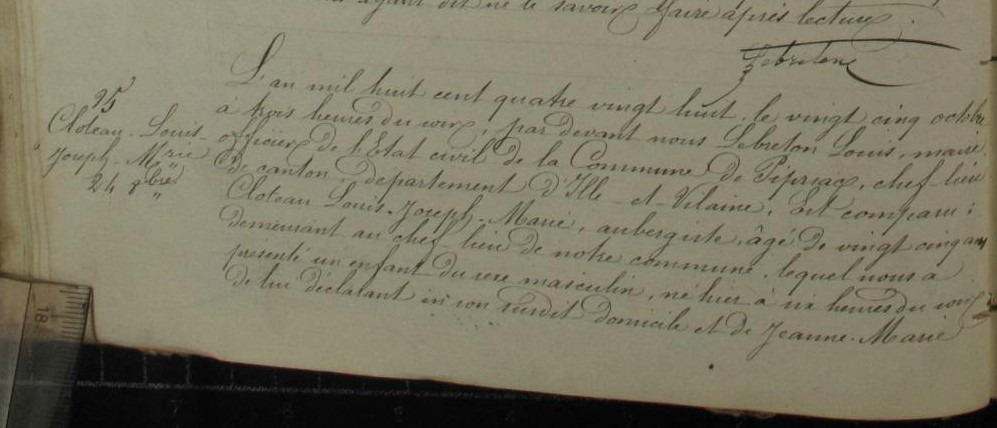 ayant dit ne le savoir faire après lecture.
Lebreton
95
Cloteau Louis
Joseph Mrie
24 8bre
L'an mil huit cent quatre vingt huit, le vingt cinq octobre
à trois heures du soir, par devant nous Lebreton Louis, maire
officier de l'Etat civil de la Commune de Pipriac, chef-lieu
de canton, département d'Ille-et-Vilaine, est comparu :
Cloteau Louis-Joseph-Marie, aubergiste, âgé de vingt cinq ans
demeurant au chef-lieu de notre commune, lequel nous a
présenté un enfant du sexe masculin, né hier à six heures du soir
de lui déclarant en son susdit domicile et de Jeanne-Marie
18